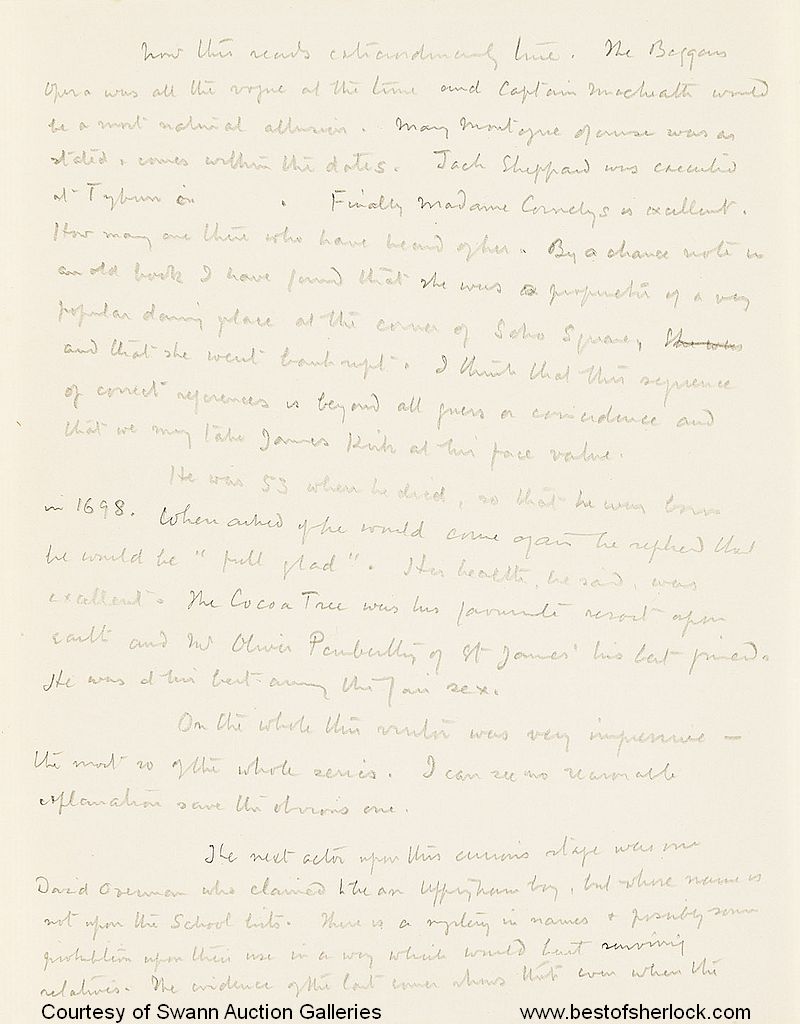 Now this reads extraordinarily true. The Beggars
Opera was all the vogue at the time and Captain Macheath would
be a most natural allusion. Mary Montague of course was as
stated, & comes within the dates. Jack Sheppard was executed
at Tyburn in . Finally Madame Cornelys is excellent.
How many are there who have heard of her. By a chance note in
an old book I have found that she was a proprietor of a very
popular dancing place at the corner of Soho Square, She was
and that she went bankrupt. I think that this sequence
of correct references is beyond all guess or coincidence and
that we may take James Kirk at his face value.
He was 53 when he died, so that he was born
in 1698. When asked if he would come again he replied that
he would be "full glad". His health, he said, was
excellent. The Cocoa Tree was his favourite resort upon
earth and Mr Oliver Pemberthy of St James' his best friend.
He was at his best among the fair sex.
On the whole this visitor was very impressive —
the most so of the whole series. I can see no reasonable
explanation save the obvious one.
The next actor upon this curious stage was one
David Overman who claimed to be an Uppingham boy, but whose name is
not upon the School lists. There is a mystery in names & possibly some
prohibition upon their use in a way which would hurt surviving
relatives. The evidence of the last comer shows that even when the
Courtesy of Swann Auction Galleries
www.bestofsherlock.com